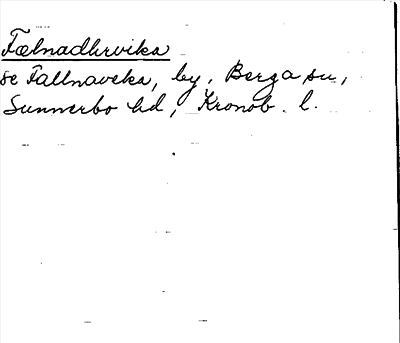 Fælnadhrvika
se Fallnaveka, by, Berga sn,
Sunnerbo hd, Kronob. l.